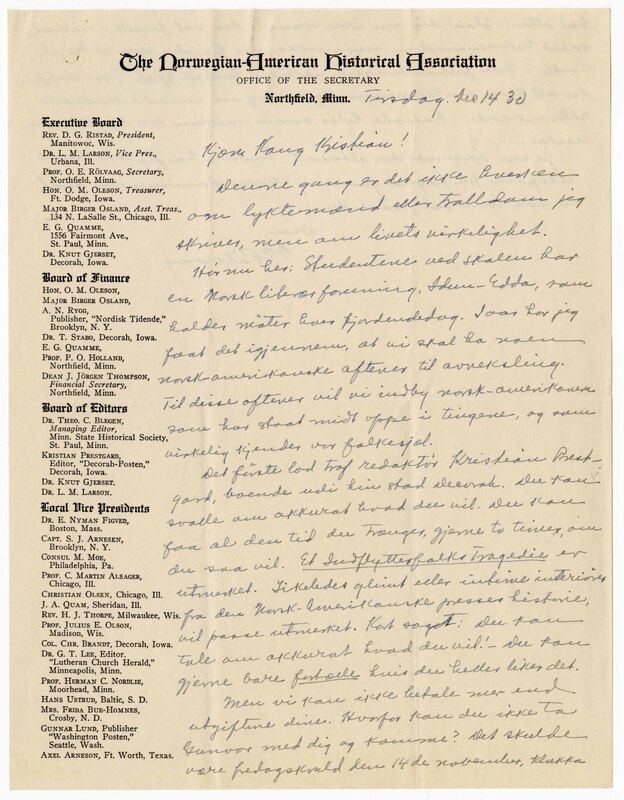 The Norwegian-American Historical Association
OFFICE OF THE SECRETARY
Northfield, Minn. Tirsdag, 14 30
Executive Board
REV. D. G. RISTAD, President,
Manitowoc, Wis.
DR. L. M. LARSON, Vice Pres.,
Urbana, Ill.
PROF. O. E. RÖLVAAG, Secretary,
Northfield, Minn.
HON. O. M. OLESON, Treasurer,
Ft. Dodge, Iowa.
MAJOR BIRGER OSLAND, Asst. Treas.,
134 N. LaSalle St., Chicago, Ill.
E. G. QUAMME,
1556 Fairmont Ave.,
St. Paul, Minn.
DR. KNUT GJERSET,
Decorah, Iowa.
Board of Finance
HON. O. M. OLESON,
MAJOR BIRGER OSLAND,
A. N. RYGG,
Publisher, "Nordisk Tidende,"
Brooklyn, N. Y.
DR. T. STABO, Decorah, Iowa.
E. G. QUAMME,
PROF. P. O. HOLLAND,
Northfield, Minn.
DEAN J. JÖRGEN THOMPSON,
Financial Secretary,
Northfield, Minn.
Board of Editors
DR. THEO. C. BLEGEN,
Managing Editor,
Minn. State Historical Society,
St. Paul, Minn.
KRISTIAN PRESTGARD,
Editor, "Decorah-Posten,"
Decorah, Iowa.
DR. KNUT GJERSET.
DR. L. M. LARSON.
Local Vice Presidents
DR. E. NYMAN FIGVED,
Boston, Mass.
CAPT. S. J. ARNESEN,
Brooklyn, N. Y.
CONSUL M. MOE,
Philadelphia, Pa.
PROF. C. MARTIN ALSAGER,
Chicago, Ill.
CHRISTIAN OLSEN, Chicago, Ill.
J. A. QUAM, Sheridan, Ill.
REV. H. J. THORPE, Milwaukee, Wis.
PROF. JULIUS E. OLSON,
Madison, Wis.
COL. CHR. BRANDT, Decorah, Iowa.
DR. G. T. LEE, Editor,
"Lutheran Church Herald,"
Minneapolis, Minn.
PROF. HERMAN C. NORDLIE,
Moorhead, Minn.
HANS USTRUD, Baltic, S. D.
MRS. FRIDA BUE-HOMNES,
Crosby, N. D.
GUNNAR LUND, Publisher
"Washington Posten,"
Seattle, Wash.
AXEL ARNESON, Ft. Worth, Texas.
Kjære Kong Kristian!
Denne gang er det ikke hverken
om lyktemænd eller Trolldom jeg
skriver, men om livets virkelighet.
Hør nu her: Studentene ved skolen har
en Norsk literær forening, Idun-Edda, som
holder møter hver fjortendedag. I aar har jeg
faat det igjennem, at vi skal ha noen
norsk-amerikanske aftener til avveksling.
Til disse aftener vil vi indby norsk-amerikanere
som har staat midt oppe i tingene, og som
virkelig kjender vor folkesjel.
Det første lod traf redaktør Kristian Prest-
gard, boende udi hin stad Decorah. Du kan
svalle om akkurat hvad du vil. Du kan
faa al den tid du trænger, gjerne to timer, om
du saa vil. Et Indflytterfolks Tragedie er
utmerket. Likeledes glimt eller intime interiører
fra den Norsk-Amerikanske presses historie,
vil passe utmerket. Kort sagt: Du kan
tale om akkurat hvad du vil! – Du kan
gjerne bare fortælle hvis du heller liker det.
Men vi kan ikke betale mer end
utgiftene dine. Hvorfor kan du ikke ta
Gunvor med dig og komme? Det skulde
være fredagskveld den 14de november, klokka